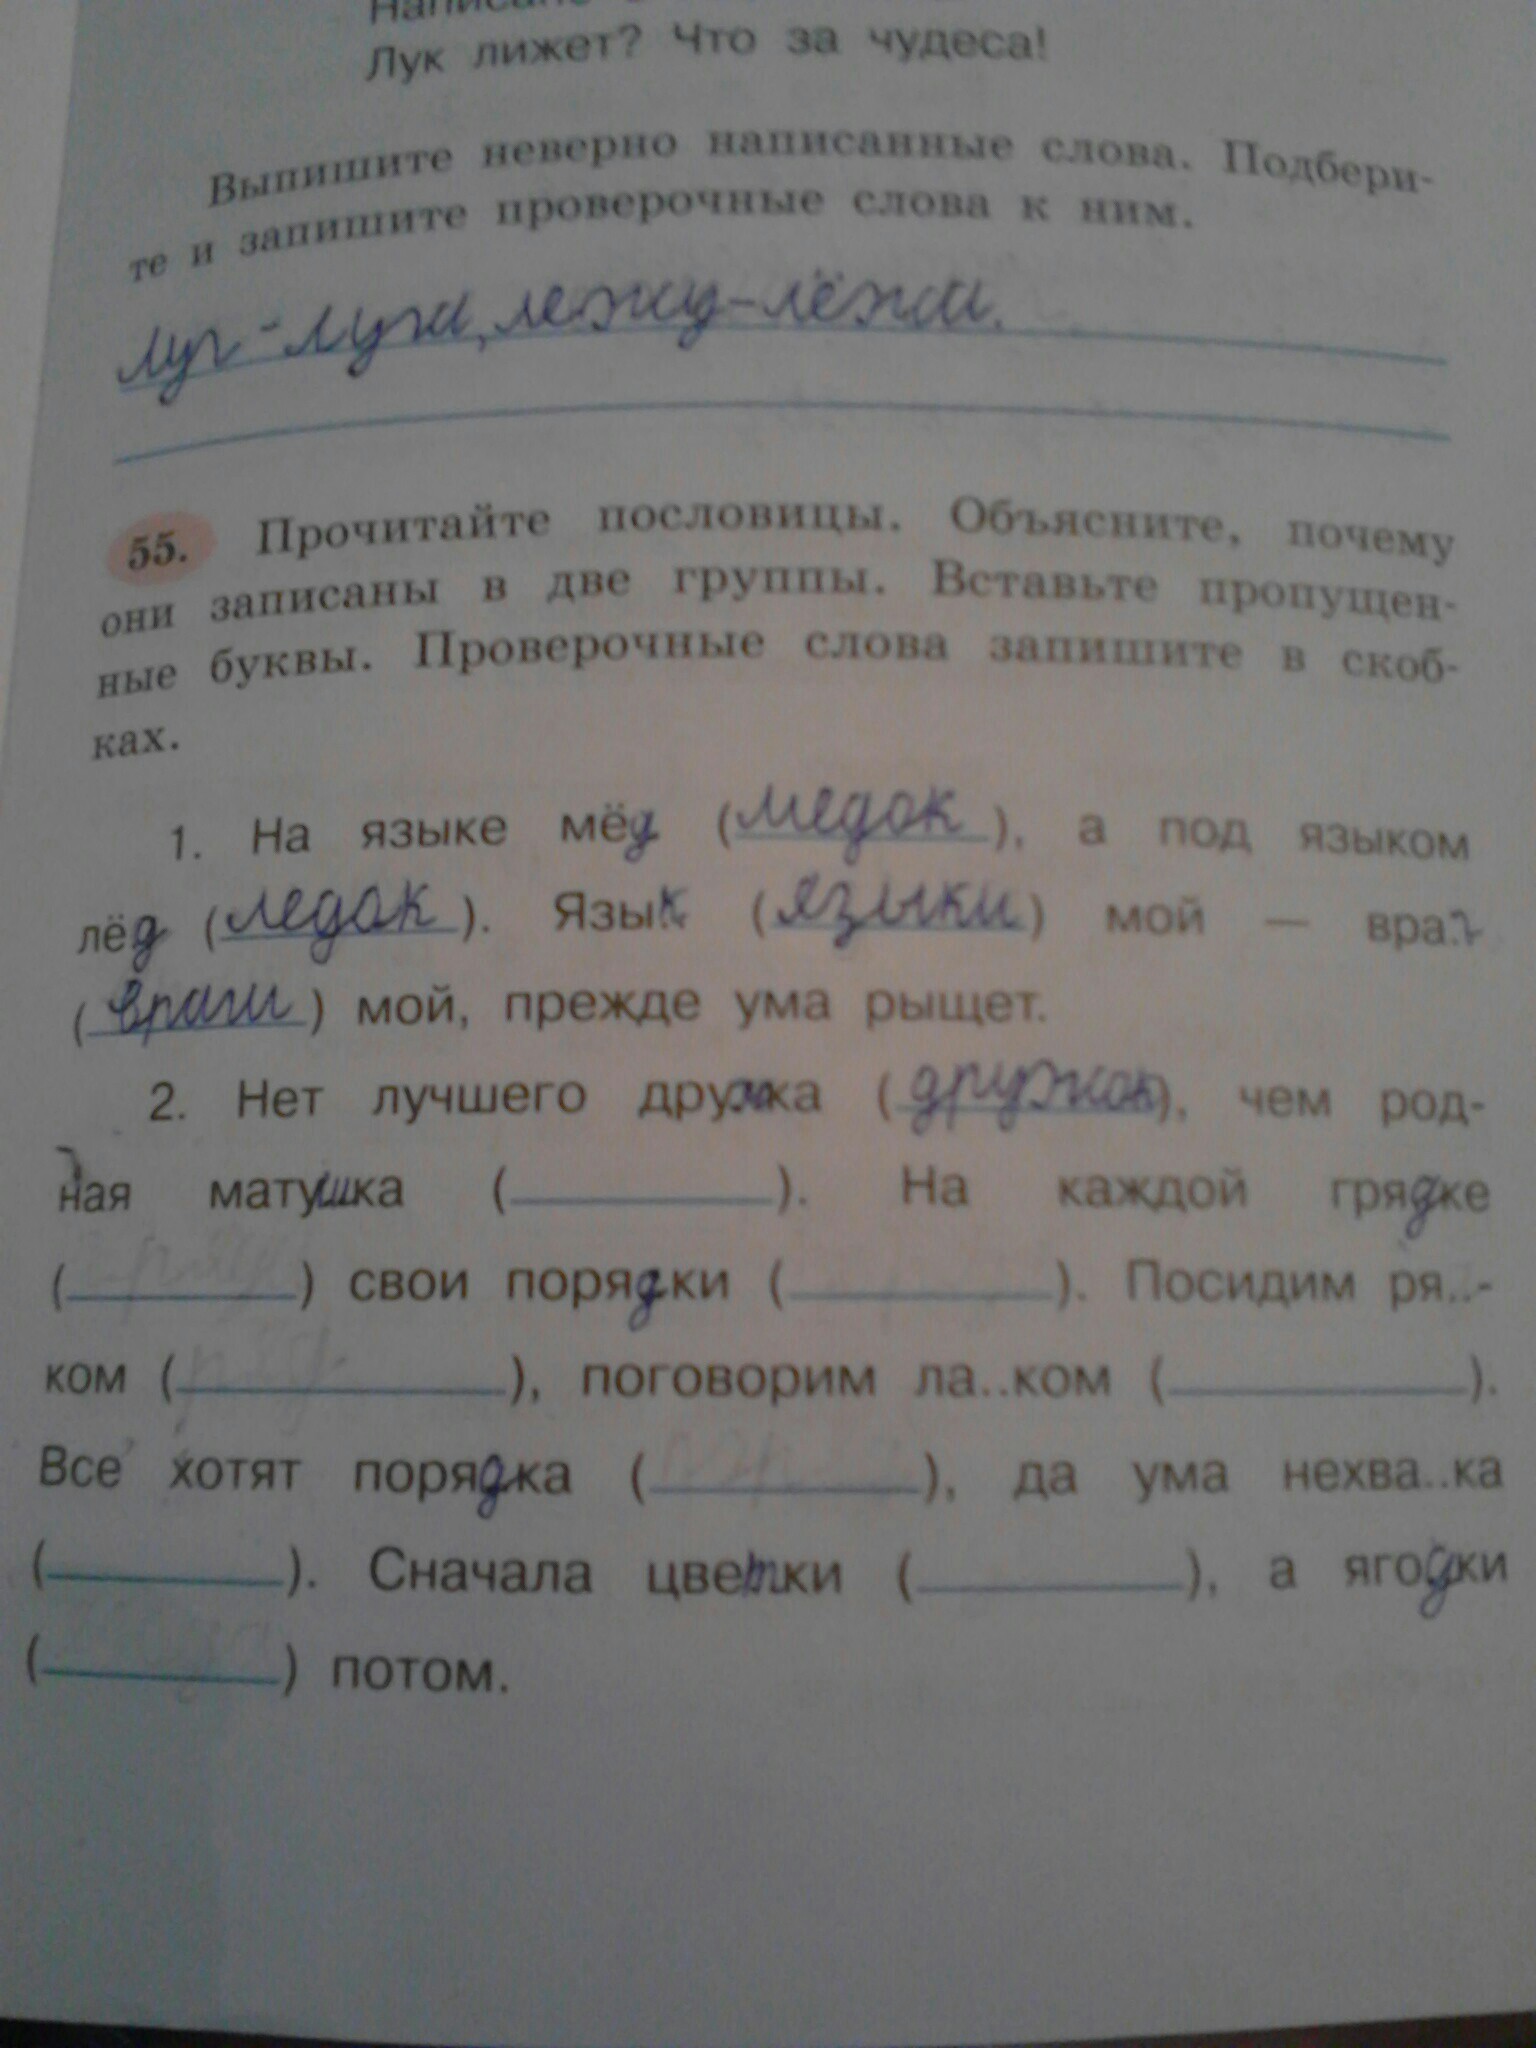 Лук лижет? Что за чудеса!
Выпишите неверно написанные слова. Подбери-
те и запишите проверочные слова к ним.
луг - луга, лежу - лёжа.
55. Прочитайте пословицы. Объясните, почему
они записаны в две группы. Вставьте пропущен-
ные буквы. Проверочные слова запишите в скоб-
ках.
1. На языке мёд (медок), а под языком
лёд (ледок). Язык (языки) мой — враг
(враги) мой, прежде ума рыщет.
2. Нет лучшего дружка (дружок), чем род-
ная матушка ( ). На каждой грядке
( ) свои порядки ( ). Посидим ря..-
ком ( ), поговорим ла..ком ( ).
Все хотят порядка ( ), да ума нехва..ка
( ). Сначала цветки ( ), а ягодки
( ) потом.